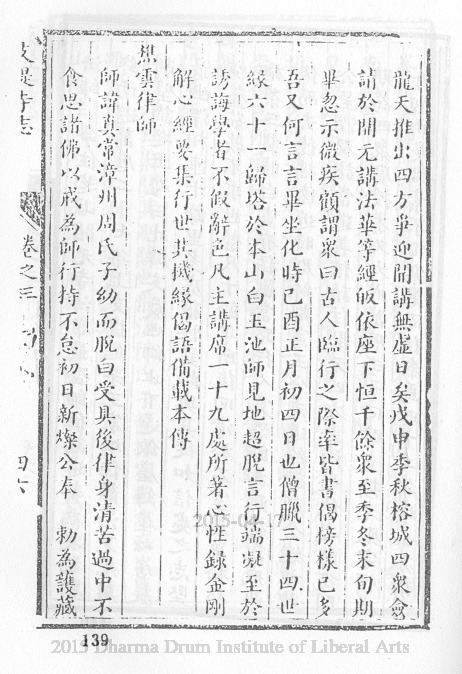 龍天推出四方爭迎開講無虛日矣戊申季秋榕城四衆僉
請於開元講法華等經皈依座下恒千餘衆至季冬末旬期
畢忽示微疾顧謂衆曰古人臨行之際率皆書偈榜樣已多
吾又何言言畢坐化時己酉正月初四日也僧臘三十四世
緣六十一歸塔於本山白玉池師見地超脫言行端凝至於
誘誨學者不假辭色凡主講席一十九處所著心性錄金剛
解心經要集行世其機緣偈語備載本傳
樵雲律師
師諱真常漳州周氏子幼而脫白受具後律身清苦過中不
食思諸佛以戒為師行持不怠初日新燦公奉 勅為護藏
寺志
卷之三
四六
139
2015-04-17
2013 Dharma Drum Institute of Liberal Arts